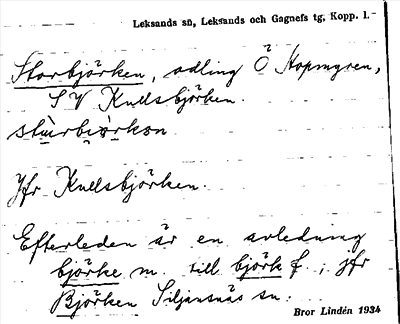 Leksands sn, Leksands och Gagnefs tg, Kopp. l.
Storbjörken, odling Ö Hopmyren,
SV Kullsbjörken.
stùrbiörkon
Jfr Kullsbjörken.
Efterleden är en avledning
björke n. till björk f.; jfr
Björken Siljansnäs sn.
Bror Lindén 1934